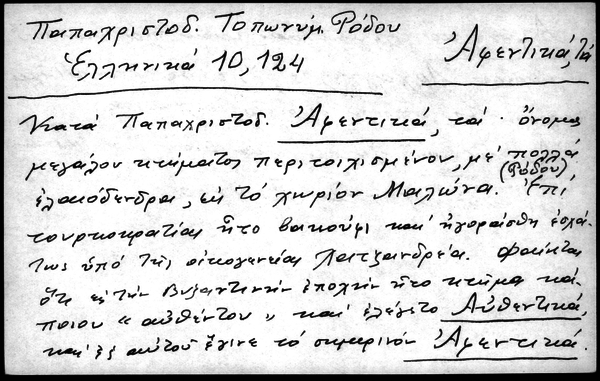 Παπαχριστοδ. Τοπωνύμ. Ρόδου
Ἑλληνικά 10, 124
Ἀφεντικά, τά
Κατά Παπαχριστοδ. Ἀφεντικά, τά · ὄνομα
μεγάλου κτήματος περιτοιχισμένου, μέ πολλά
ἐλαιόδενδρα, εἰς τό χωρίον Μαλῶνα. (Ρόδου) Ἐπί
τουρκοκρατίας ἦτο βακούφι καί ἠγοράσθη ἐσχά-
τως ὑπό τῆς οἰκογενείας Χατζηανδρέα. Φαίνεται
ὅτι εἰς τήν Βυζαντινήν ἐποχήν ἦτο κτῆμα κά-
ποιου « αὐθέντου » καί ἐλέγετο Αὐθεντικά,
καί ἐξ αὐτοῦ ἔγινε τό σημερινόν Ἀφεντικά.